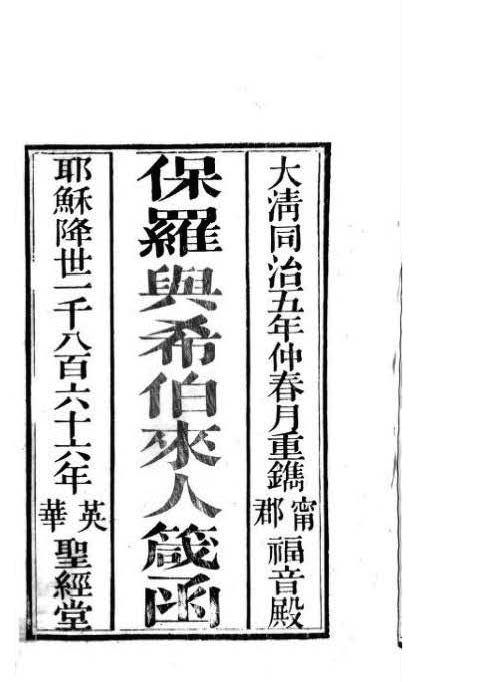 大清同治五年仲春月重鐫甯郡福音殿
保羅與希伯來人箴函
耶穌降世一千八百六十六年英華聖經堂